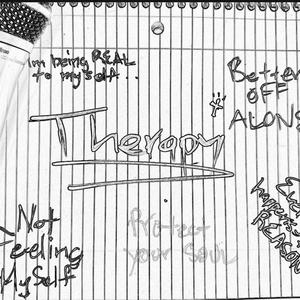 I'm being REAL
to myself..
Better
OFF
ALONE
Therapy
Not
Feeling
Myself
Protect
your Soul
Everything
happens for a
REASON